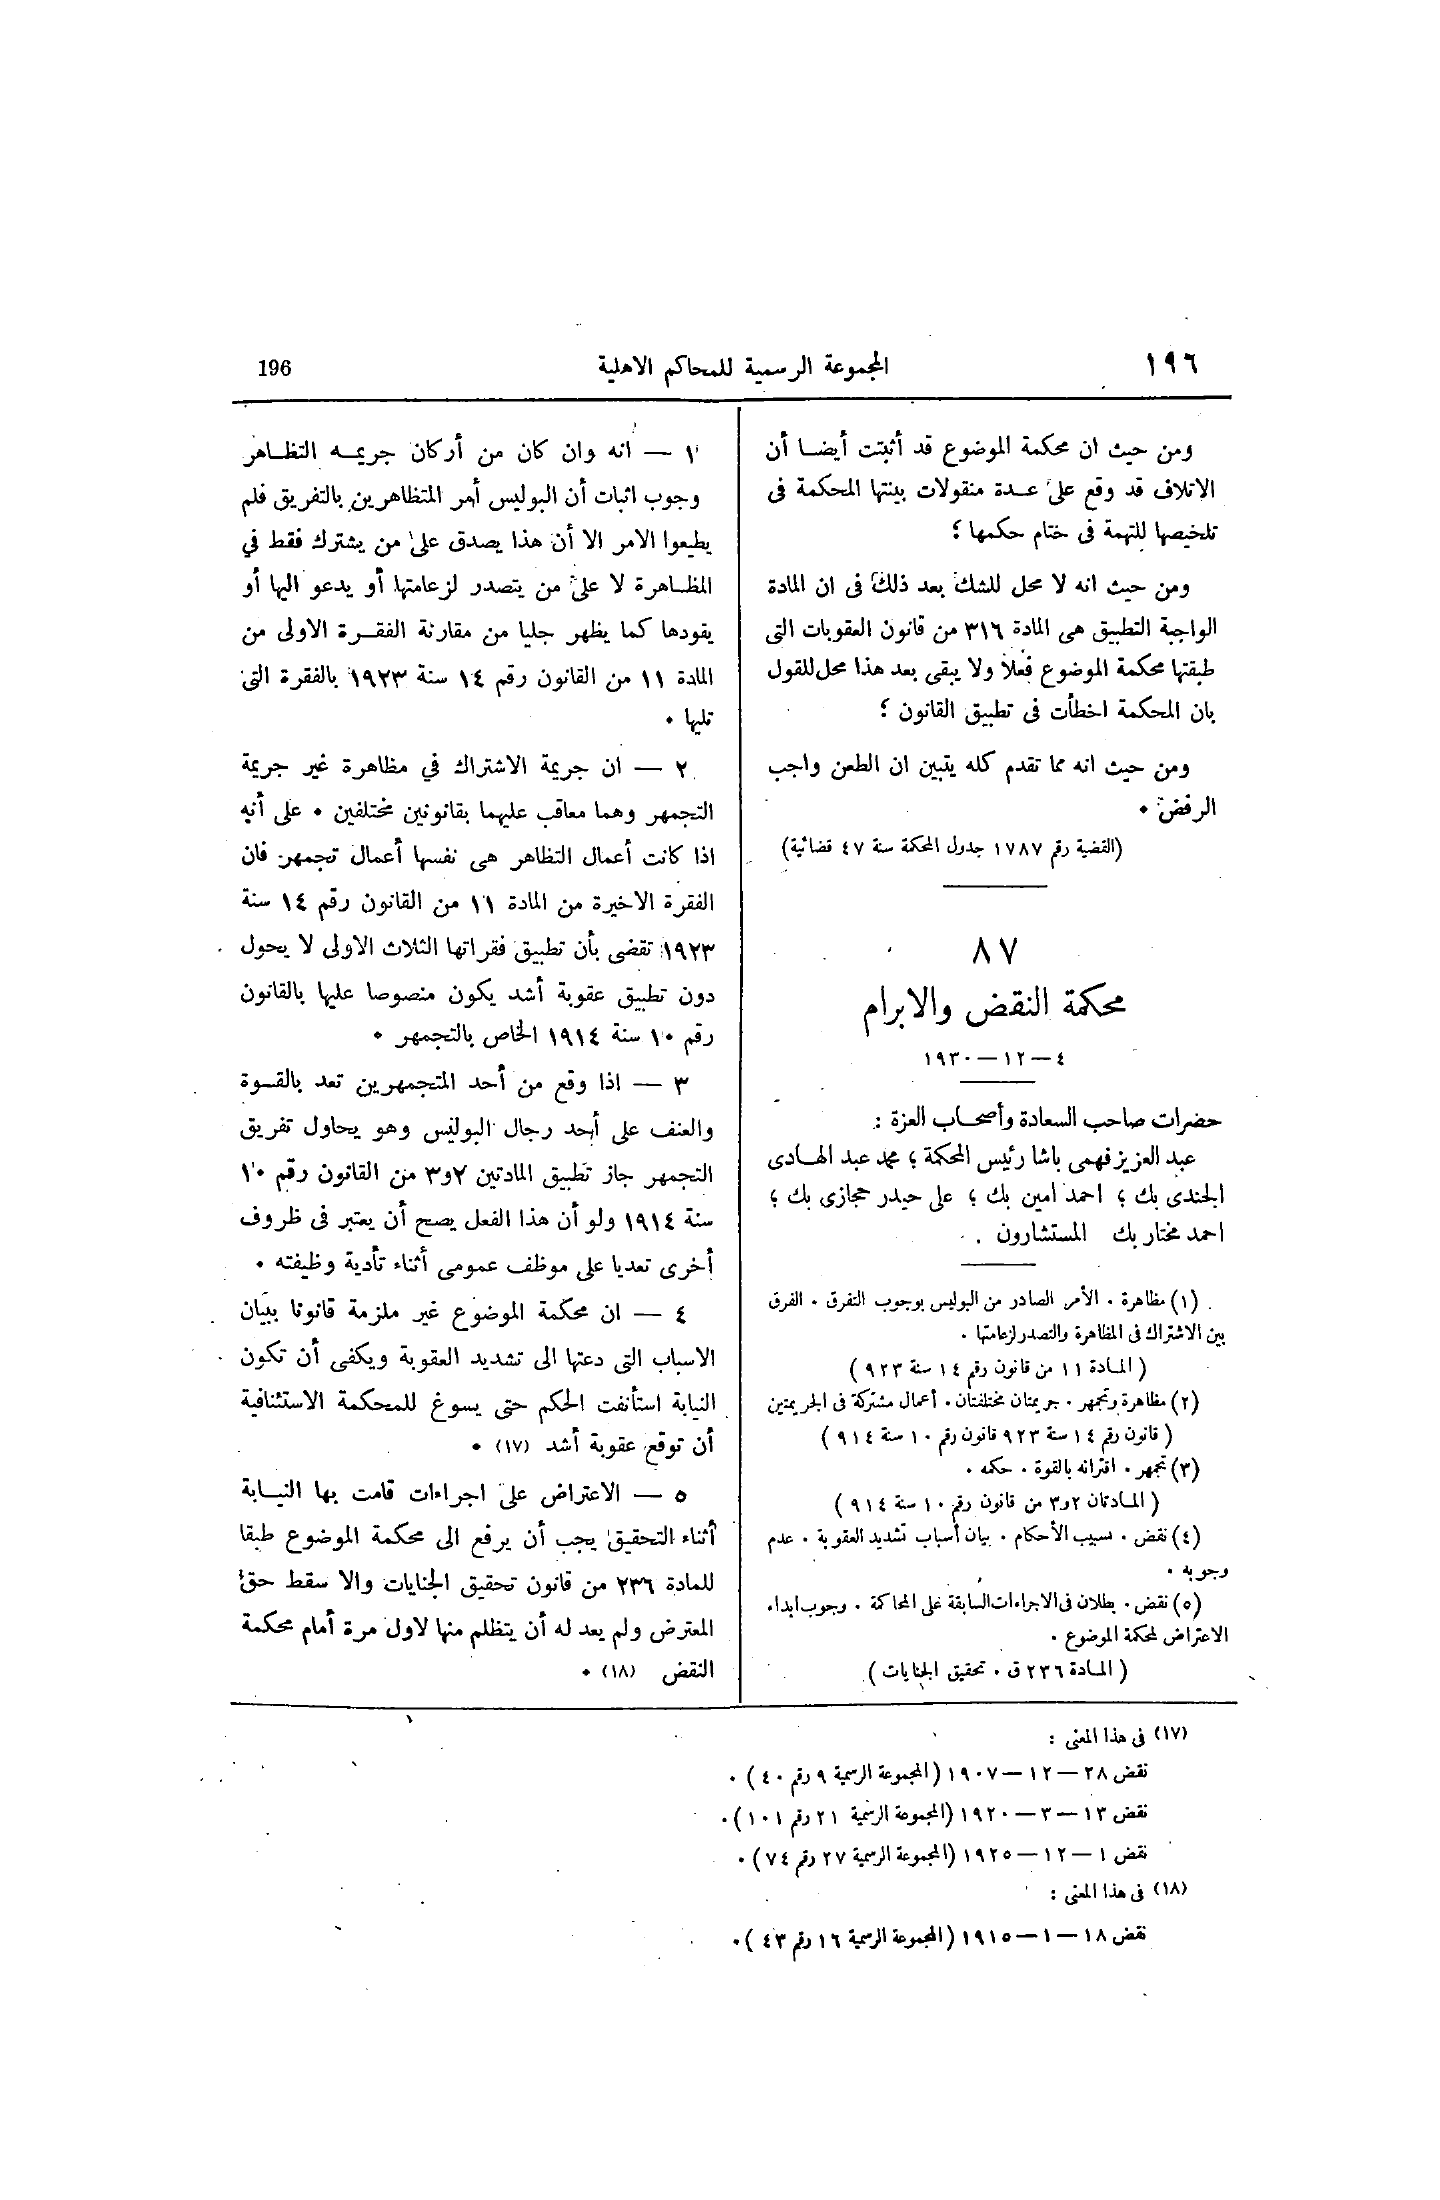 ١٩٦
المجموعة الرسمية للمحاكم الاهلية
196
ومن حيث ان محكمة الموضوع قد أثبتت أيضا أن
الاتلاف قد وقع على عدة منقولات بينتها المحكمة فى
تلخيصها للتهمة فى ختام حكمها ؛
ومن حيث انه لا محل للشك بعد ذلك فى ان المادة
الواجبة التطبيق هى المادة ٣١٦ من قانون العقوبات التى
طبقتها محكمة الموضوع فعلا ولا يبقى بعد هذا محل للقول
بان المحكمة اخطأت فى تطبيق القانون ؛
ومن حيث انه مما تقدم كله يتبين ان الطعن واجب
الرفض .
(القضية رقم ١٧٨٧ جدول المحكمة سنة ٤٧ قضائية)
٨٧
محكمة النقض والابرام
٤ — ١٢ — ١٩٣٠
حضرات صاحب السعادة وأصحاب العزة :
عبد العزيز فهمى باشا رئيس المحكمة ؛ محمد عبد الهادى
الجندى بك ؛ احمد امين بك ؛ على حيدر حجازى بك ؛
احمد مختار بك المستشارون .
(١) مظاهرة . الأمر الصادر من البوليس بوجوب التفرق . الفرق
بين الاشتراك فى المظاهرة والتصدر لزعامتها .
( المادة ١١ من قانون رقم ١٤ سنة ٩٢٣ )
(٢) مظاهرة وتجمهر . جريمتان مختلفتان . أعمال مشتركة فى الجريمتين
( قانون رقم ١٤ سنة ٩٢٣ قانون رقم ١٠ سنة ٩١٤ )
(٣) تجمهر . اقترانه بالقوة . حكمه .
( المادتان ٢ و٣ من قانون رقم ١٠ سنة ٩١٤ )
(٤) نقض . تسبيب الأحكام . بيان أسباب تشديد العقوبة . عدم
وجوبه .
(٥) نقض . بطلان فى الاجراءات السابقة على المحاكمة . وجوب ابداء
الاعتراض لمحكمة الموضوع .
( المادة ٢٣٦ ق . تحقيق الجنايات )
١ — انه وان كان من أركان جريمه التظاهر
وجوب اثبات أن البوليس أمر المتظاهرين بالتفريق فلم
يطيعوا الامر الا أن هذا يصدق على من يشترك فقط في
المظاهرة لا على من يتصدر لزعامتها أو يدعو اليها أو
يقودها كما يظهر جليا من مقارنة الفقرة الاولى من
المادة ١١ من القانون رقم ١٤ سنة ١٩٢٣ بالفقرة التى
تليها .
٢ — ان جريمة الاشتراك في مظاهرة غير جريمة
التجمهر وهما معاقب عليهما بقانونين مختلفين . على أنه
اذا كانت أعمال التظاهر هى نفسها أعمال تجمهر فان
الفقرة الاخيرة من المادة ١١ من القانون رقم ١٤ سنة
١٩٢٣ تقضى بأن تطبيق فقراتها الثلاث الاولى لا يحول
دون تطبيق عقوبة أشد يكون منصوصا عليها بالقانون
رقم ١٠ سنة ١٩١٤ الخاص بالتجمهر .
٣ — اذا وقع من أحد المتجمهرين تعد بالقوة
والعنف على أحد رجال البوليس وهو يحاول تفريق
التجمهر جاز تطبيق المادتين ٢و٣ من القانون رقم ١٠
سنة ١٩١٤ ولو أن هذا الفعل يصح أن يعتبر فى ظروف
أخرى تعديا على موظف عمومى أثناء تأدية وظيفته .
٤ — ان محكمة الموضوع غير ملزمة قانونا ببيان
الاسباب التى دعتها الى تشديد العقوبة ويكفى أن تكون
النيابة استأنفت الحكم حتى يسوغ للمحكمة الاستئنافية
أن توقع عقوبة أشد (١٧) .
٥ — الاعتراض على اجراءات قامت بها النيابة
أثناء التحقيق يجب أن يرفع الى محكمة الموضوع طبقا
للمادة ٢٣٦ من قانون تحقيق الجنايات والا سقط حق
المعترض ولم يعد له أن يتظلم منها لاول مرة أمام محكمة
النقض (١٨) .
(١٧) فى هذا المعنى :
نقض ٢٨ — ١٢ — ١٩٠٧ (المجموعة الرسمية ٩ رقم ٤٠ ) .
نقض ١٣ — ٣ — ١٩٢٠ (المجموعة الرسمية ٢١ رقم ١٠١) .
نقض ١ — ١٢ — ١٩٢٥ (المجموعة الرسمية ٢٧ رقم ٧٤) .
(١٨) فى هذا المعنى :
نقض ١٨ — ١ — ١٩١٥ (المجموعة الرسمية ١٦ رقم ٤٣ ) .